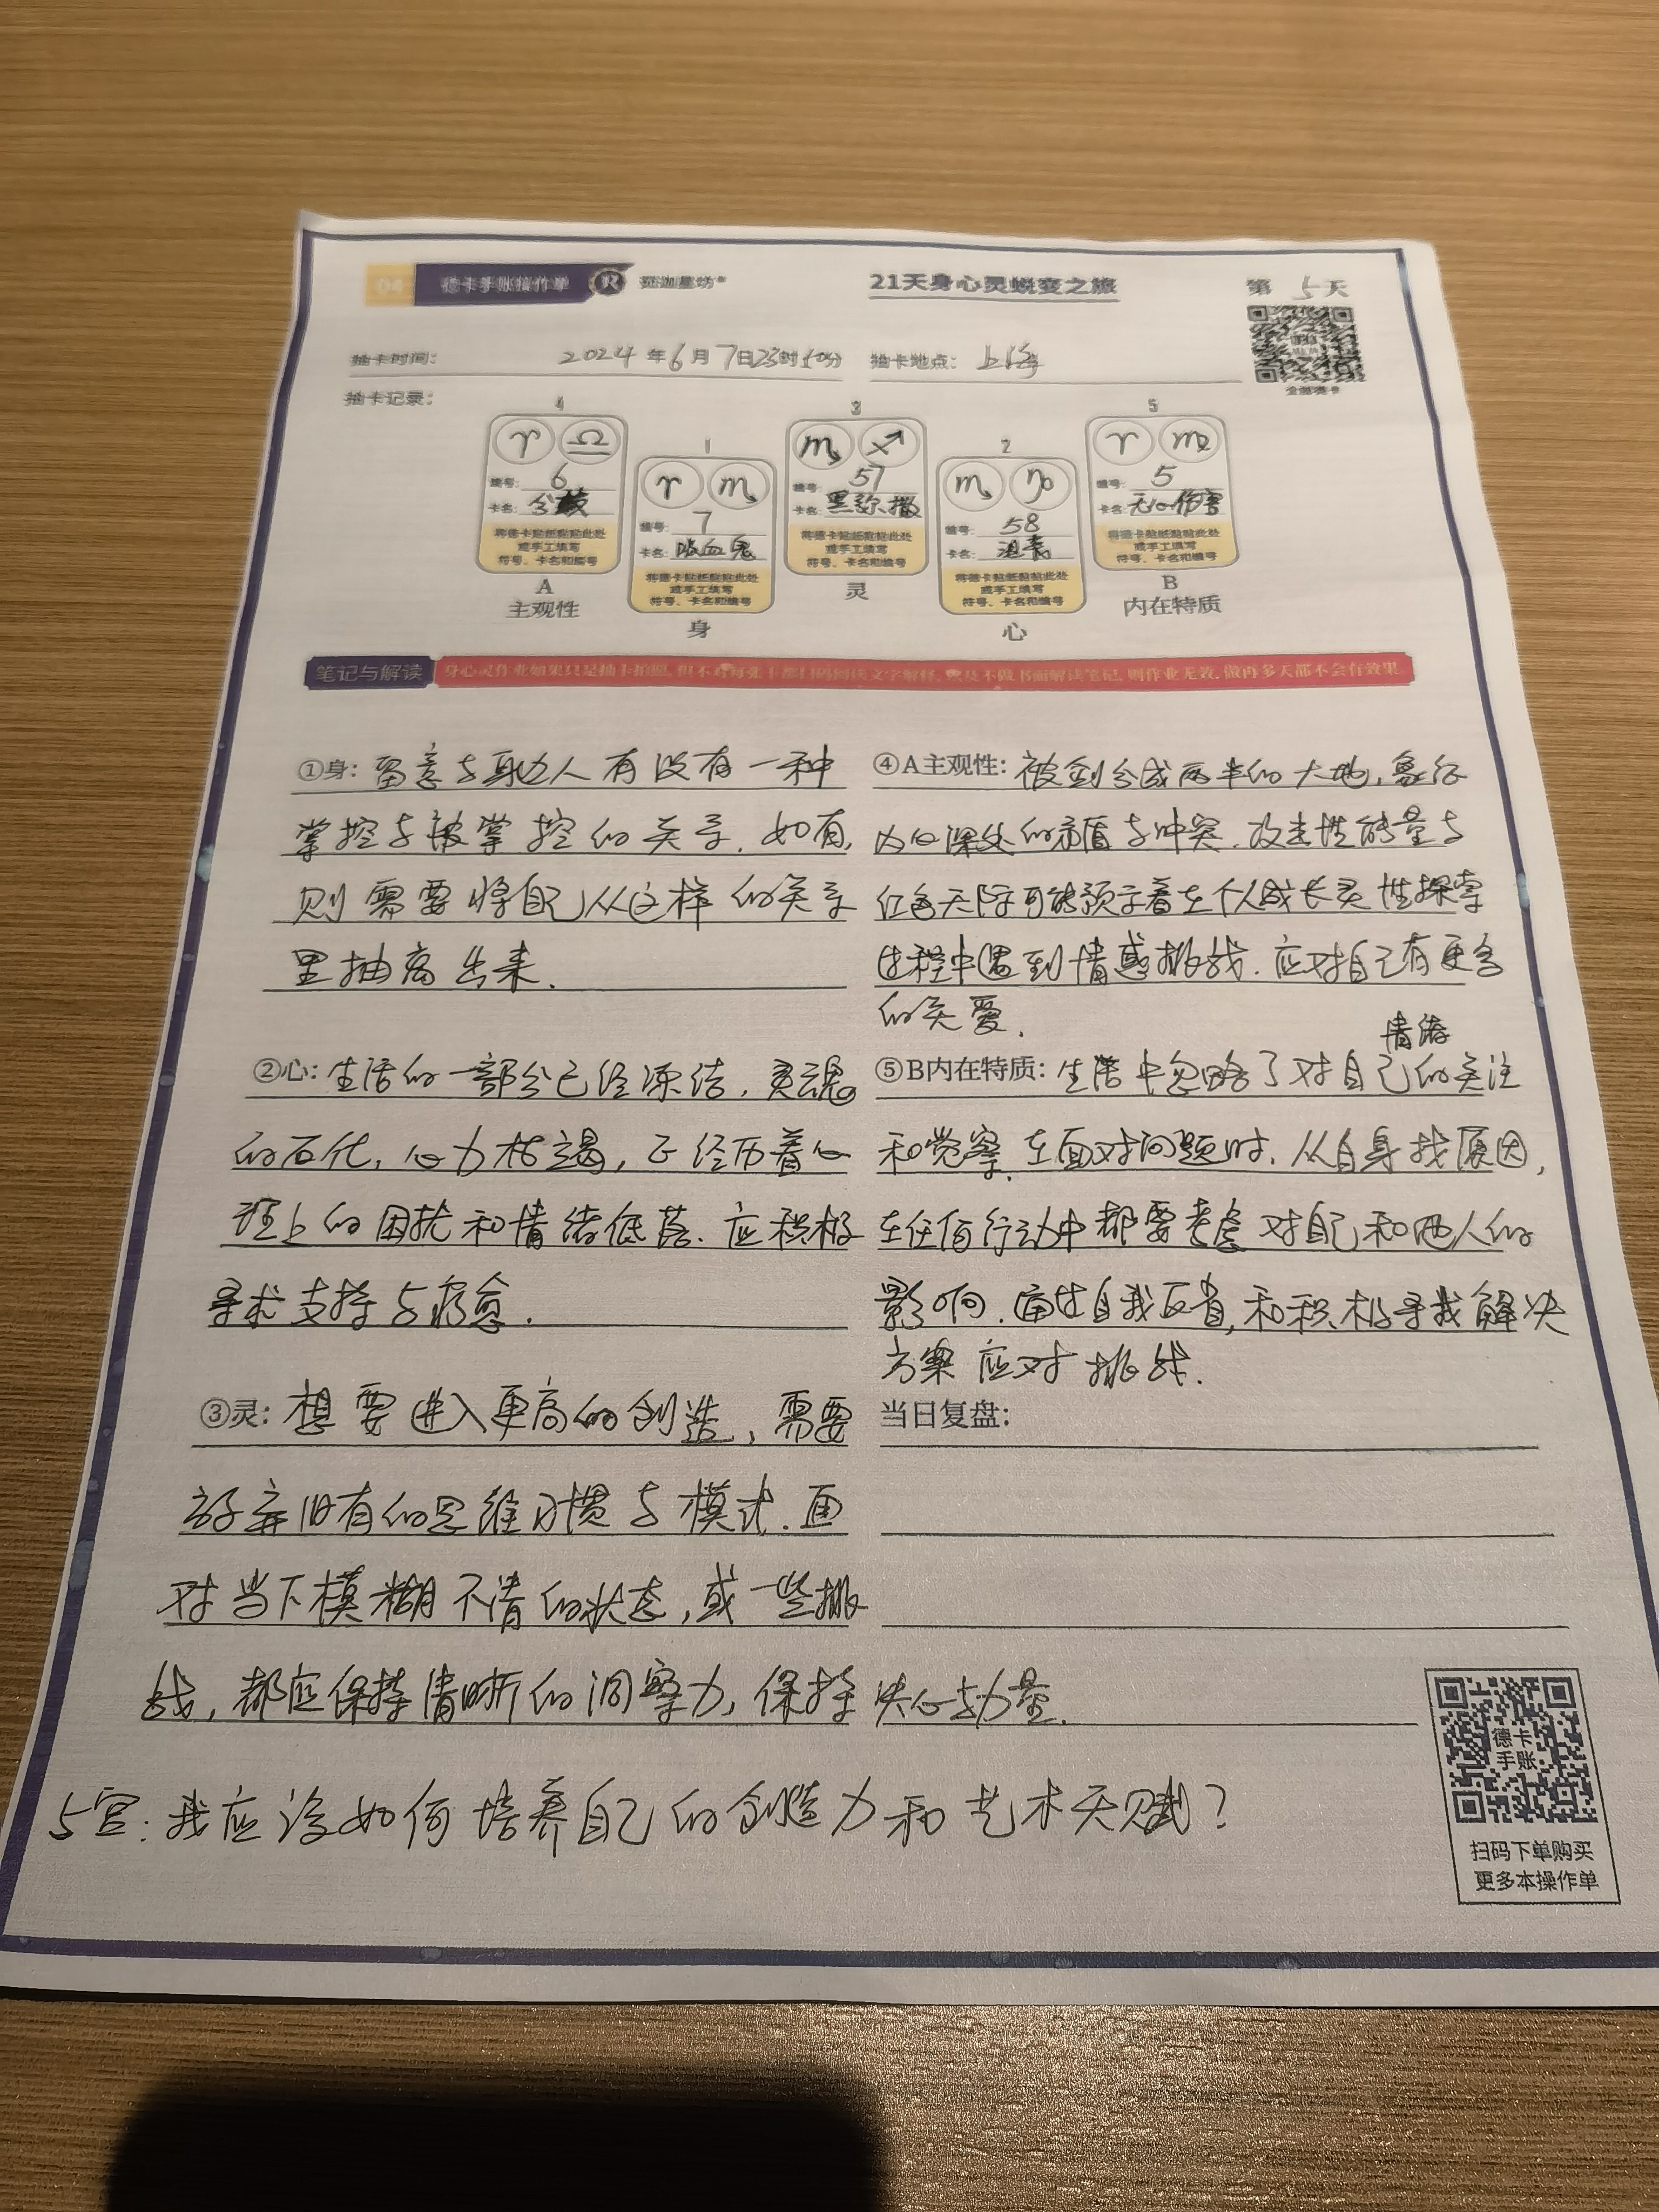 04 德卡手账操作单 R 亚迦星坊
21天身心灵蜕变之旅
第 5 天
抽卡时间: 2024年6月7日23时50分 抽卡地点: 上海
全部德卡
抽卡记录:
4
♈ ♎
编号: 6
卡名: 分裂
将德卡贴纸黏贴此处
或手工填写
符号、卡名和编号
A
主观性
1
♈ ♏
编号: 7
卡名: 吸血鬼
将德卡贴纸黏贴此处
或手工填写
符号、卡名和编号
身
3
♏ ♐
编号: 57
卡名: 黑弥撒
将德卡贴纸黏贴此处
或手工填写
符号、卡名和编号
灵
2
♏ ♑
编号: 58
卡名: 沮丧
将德卡贴纸黏贴此处
或手工填写
符号、卡名和编号
心
5
♈ ♍
编号: 5
卡名: 无心伤害
将德卡贴纸黏贴此处
或手工填写
符号、卡名和编号
B
内在特质
笔记与解读
身心灵作业如果只是抽卡拍照, 但不对每张卡都扫码阅读文字解释, 以及不做书面解读笔记, 则作业无效, 做再多天都不会有效果
①身: 留意与身边人有没有一种
掌控与被掌控的关系. 如有,
则需要将自己从这样的关系
里抽离出来.
②心: 生活的一部分已经冻结, 灵魂
的石化, 心力枯竭, 正经历着心
理上的困扰和情绪低落. 应积极
寻求支持与疗愈.
③灵: 想要进入更高的创造, 需要
放弃旧有的思维习惯与模式. 面
对当下模糊不清的状态, 或一些挑
战, 都应保持清晰的洞察力, 保持决心与力量.
④A主观性: 被剑分成两半的大地, 象征
内心深处的矛盾与冲突. 攻击性能量与
红色天际可能预示着在个人成长灵性探索
过程中遇到情感挑战. 应对自己有更多
的关爱.
情绪
⑤B内在特质: 生活中忽略了对自己的关注
和觉察. 在面对问题时, 从自身找原因,
在任何行动中都要考虑对自己和他人的
影响. 通过自我反省, 和积极寻找解决
方案应对挑战.
当日复盘:
5宫: 我应该如何培养自己的创造力和艺术天赋?
德卡
手账
扫码下单购买
更多本操作单